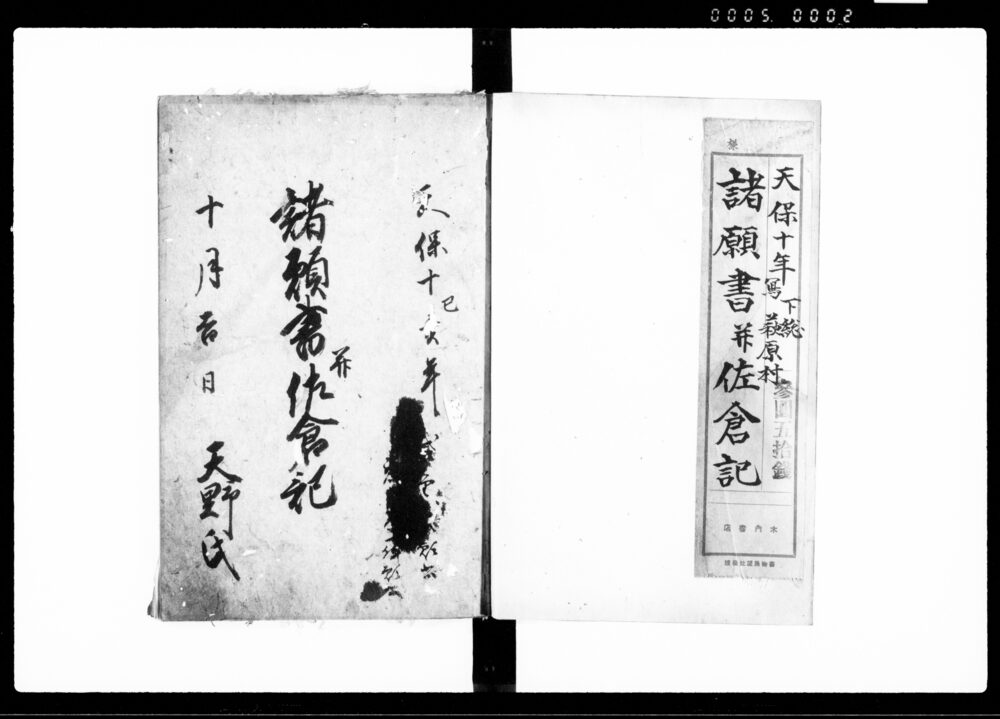 0005. 0002
天保十年写 下総 萩原村
参圓五拾錢
諸願書并佐倉記
木内書店
天保十己亥年
諸願書并佐倉記
十月吉日
天野氏